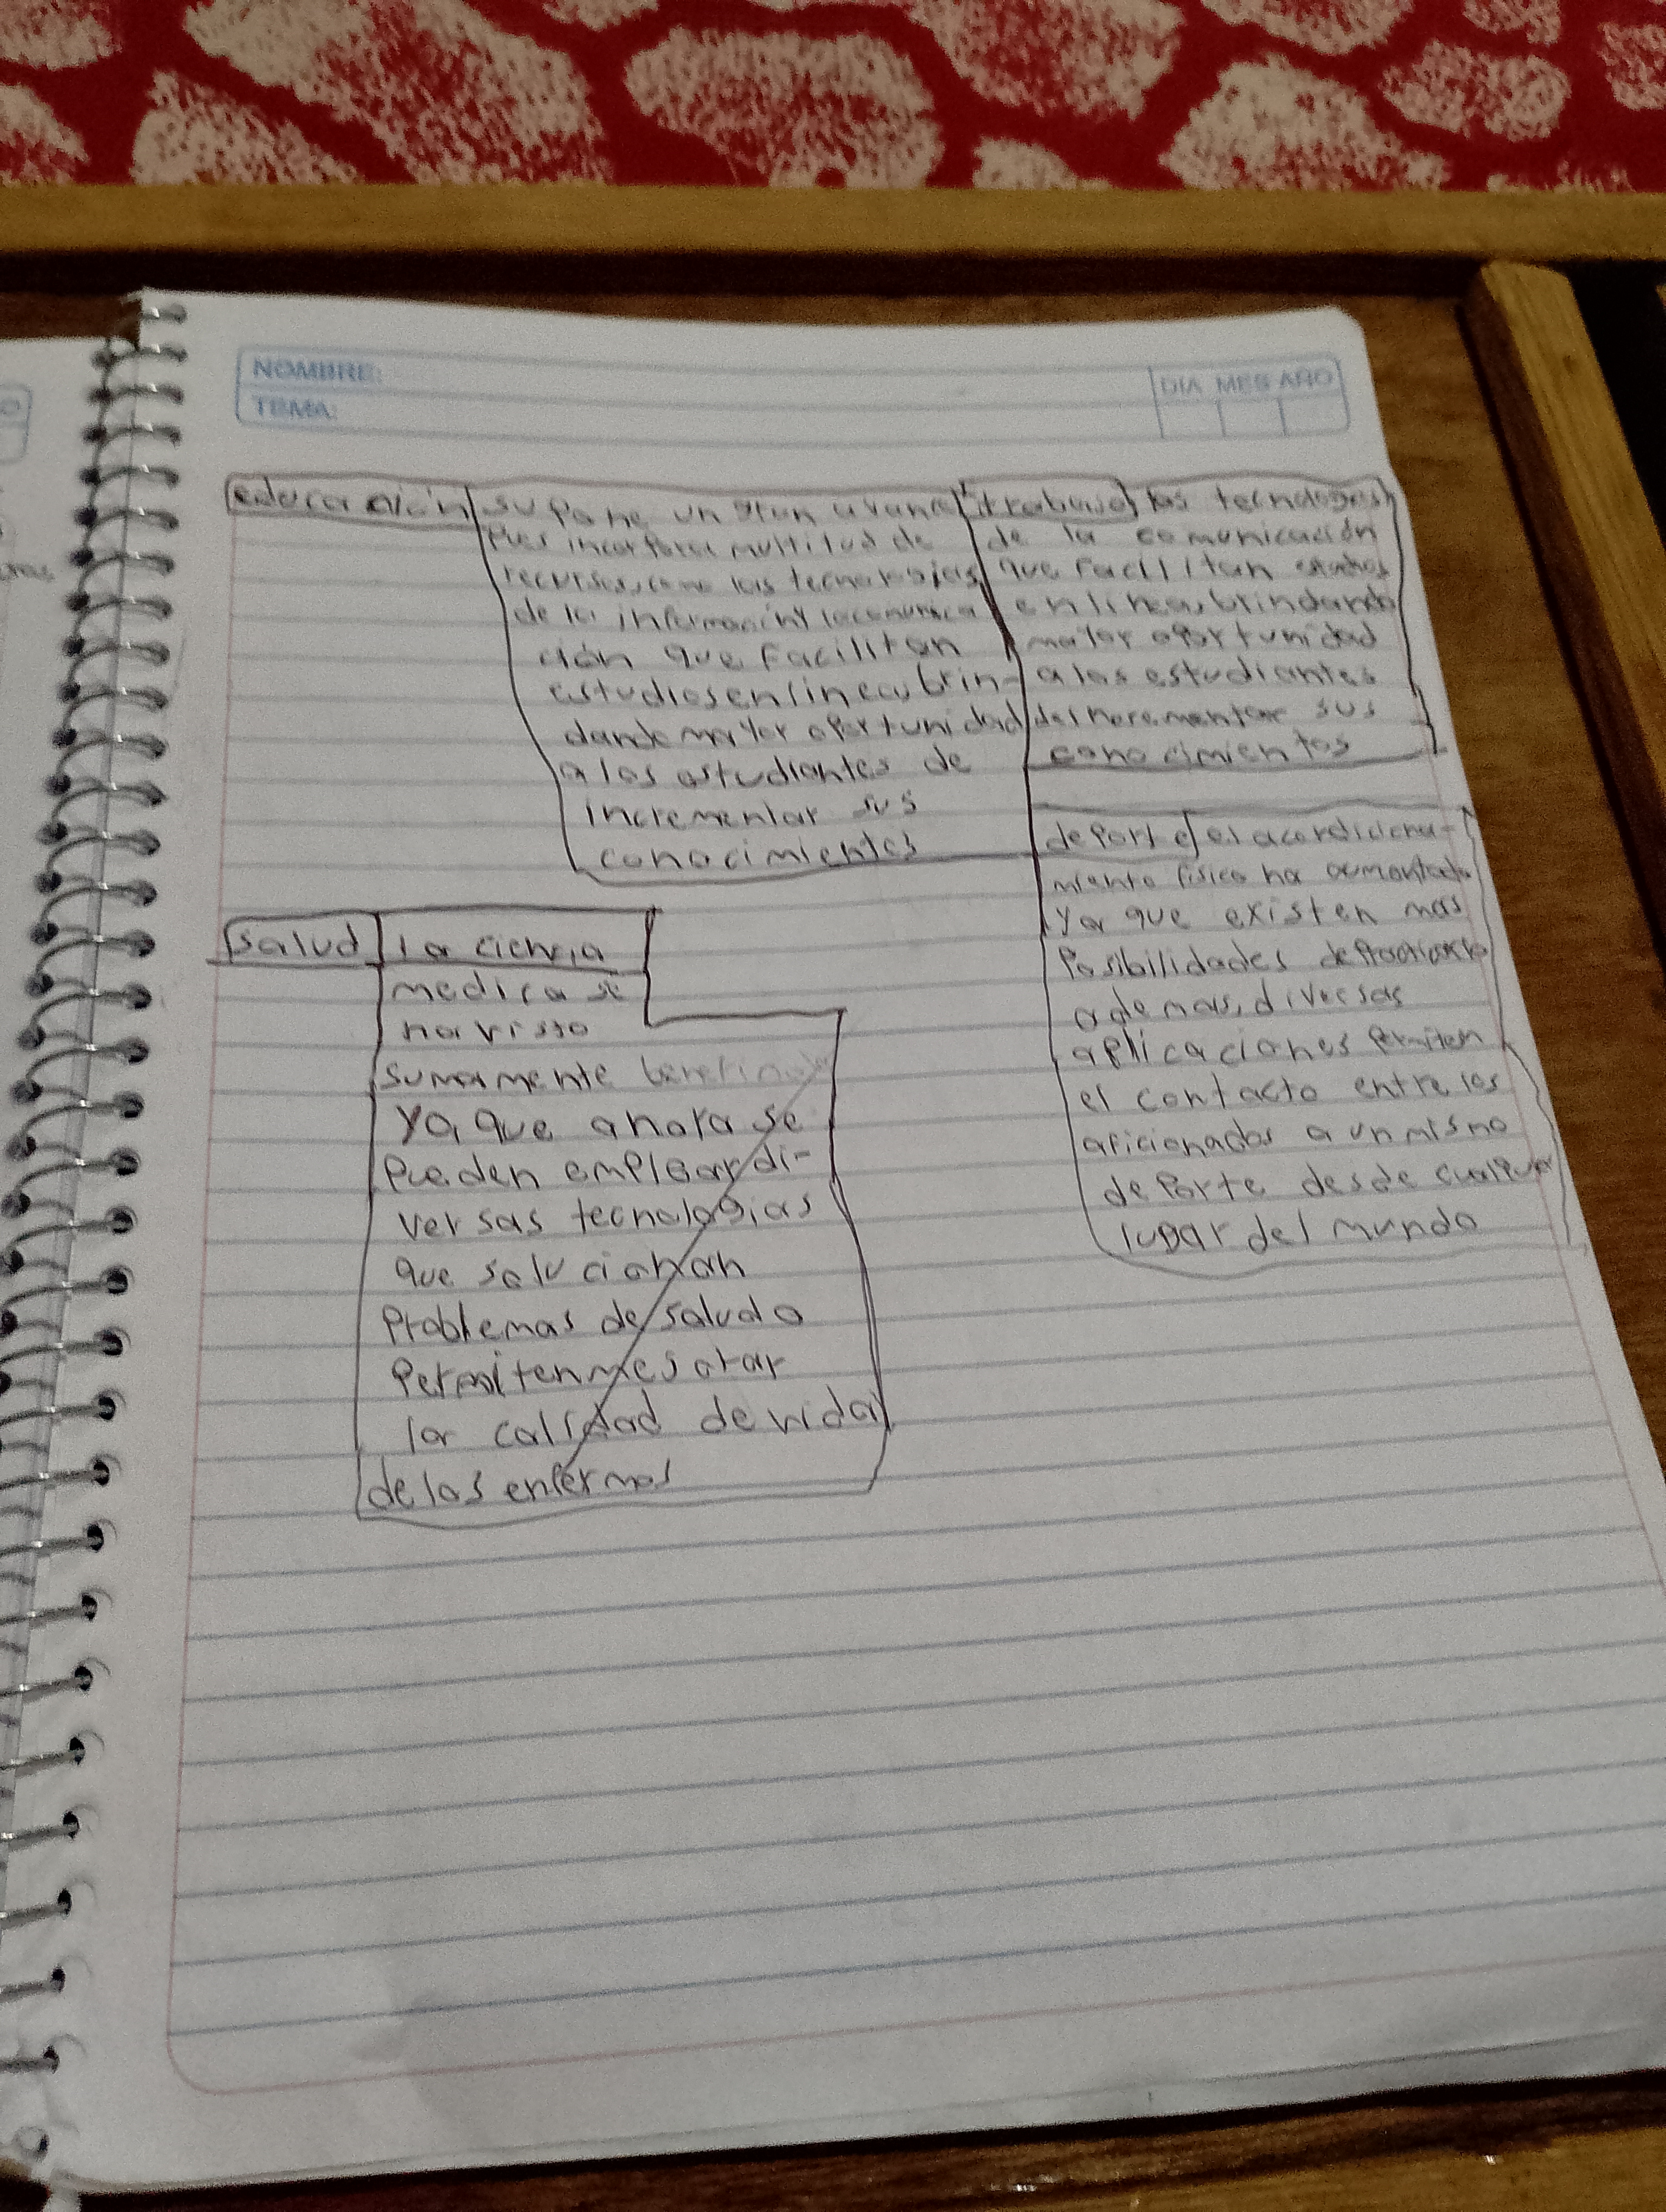 NOMBRE:
TEMA:
DIA MES AÑO
educación
supone un gran avance
pues incorpora multitud de
recursos, como las tecnologias
de la información y la comunica
ción que facilitan
estudios en linea, brin-
dando mayor oportunidad
a los estudiantes de
incrementar sus
conocimientos
trabajo las tecnologias
de la comunicación
que facilitan estudios
en linea, brindando
mayor oportunidad
a los estudiantes
de incrementar sus
conocimientos
deporte el acondiciona-
miento fisico ha aumentado
ya que existen mas
posibilidades de practicarlo
ademas, diversas
aplicaciones permiten
el contacto entre los
aficionados a un mismo
deporte desde cualquier
lugar del mundo
salud
la ciencia
medica se
ha visto
sumamente beneficiada
ya que ahora se
pueden emplear di-
versas tecnologias
que solucionan
problemas de salud o
permiten mejorar
la calidad de vida
de los enfermos